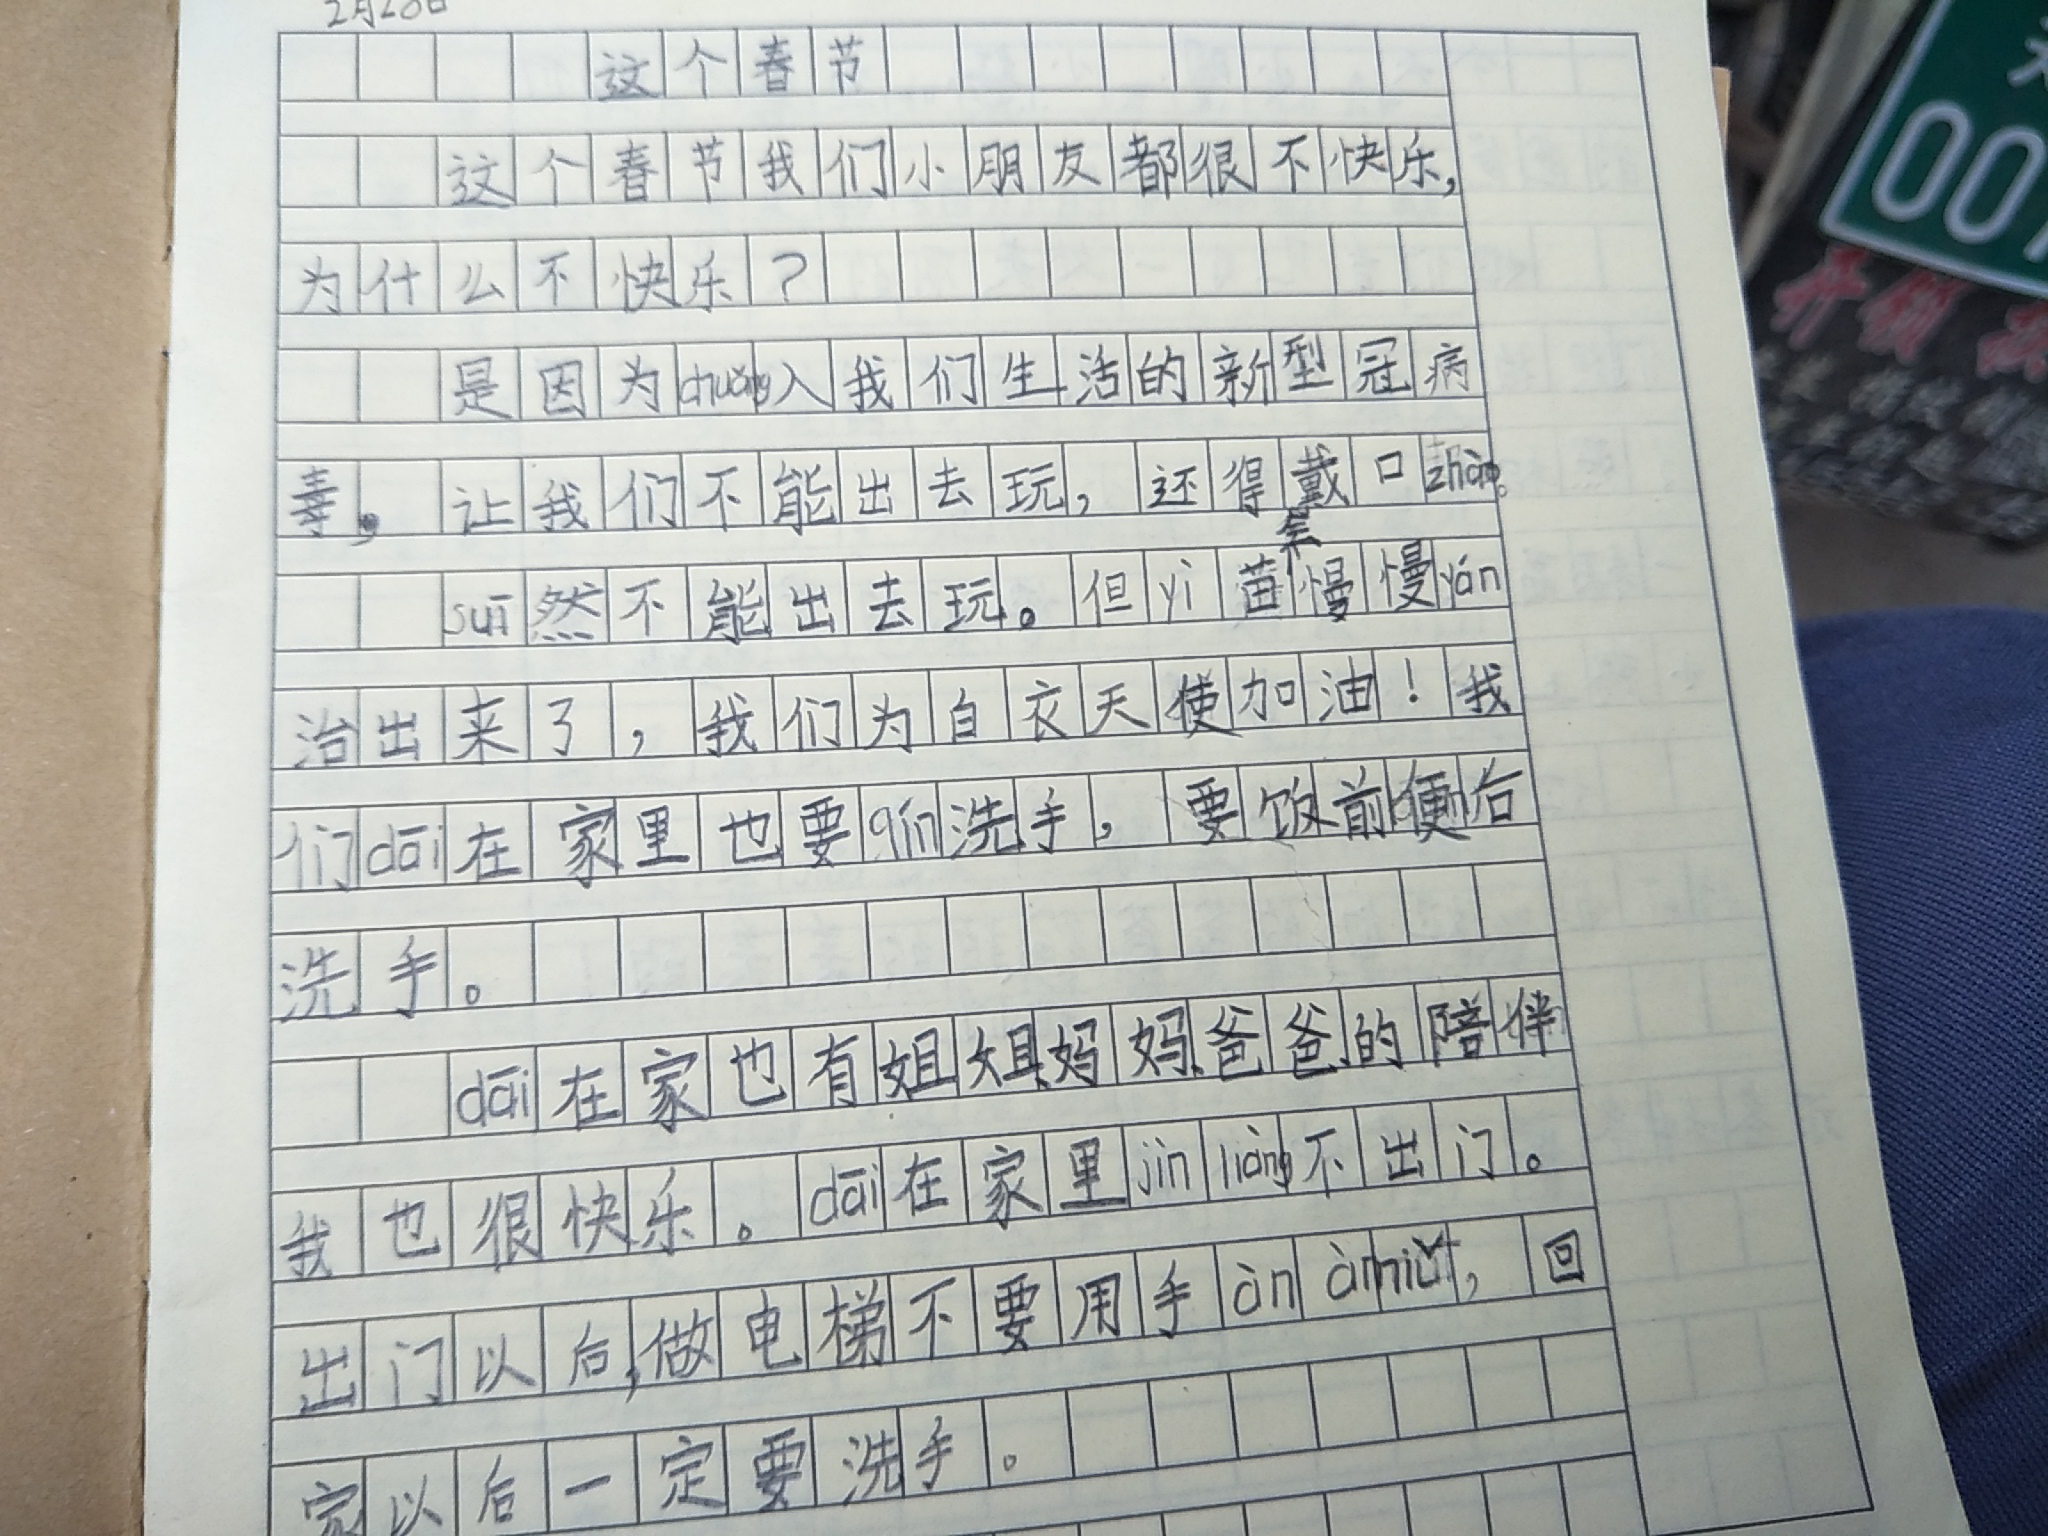 2月28日
这个春节
这个春节我们小朋友都很不快乐,
为什么不快乐?
是因为chuǎng入我们生活的新型冠病
毒。让我们不能出去玩,还得戴口zhào。
suī然不能出去玩。但yì苗慢慢yán
治出来了,我们为白衣天使加油!我
们dāi在家里也要qín洗手,要饭前便后
洗手。
dāi在家也有姐姐妈妈爸爸的陪伴
我也很快乐。dāi在家里jìn liàng不出门。
出门以后,做电梯不要用手àn àn niǔ,回
家以后一定要洗手。
00
开锁